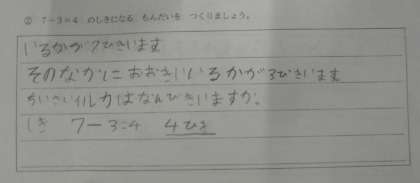 ② 7-3=4 のしきになる もんだいを つくりましょう。
いるかが7ひきいます
そのなかにおおきいいるかが3びきいます
ちいさいイルカはなんびきいますか。
しき 7-3=4 4ひき